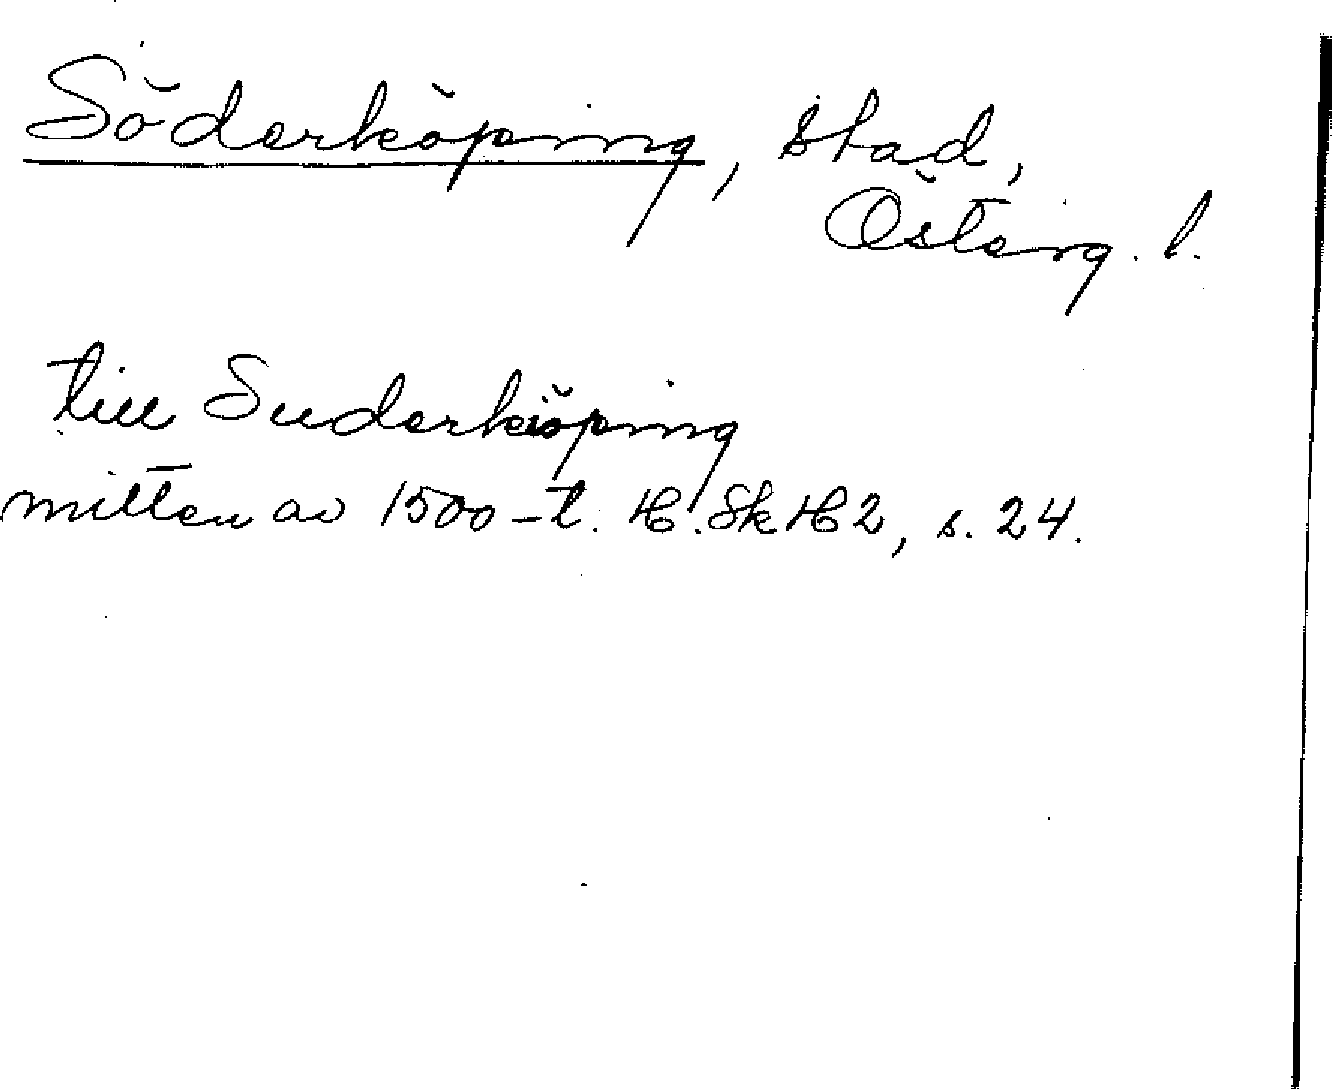 Söderköping, stad,
Österg. l.
till Suderkiöping
mitten av 1500-t. H.Sk H2, s. 24.